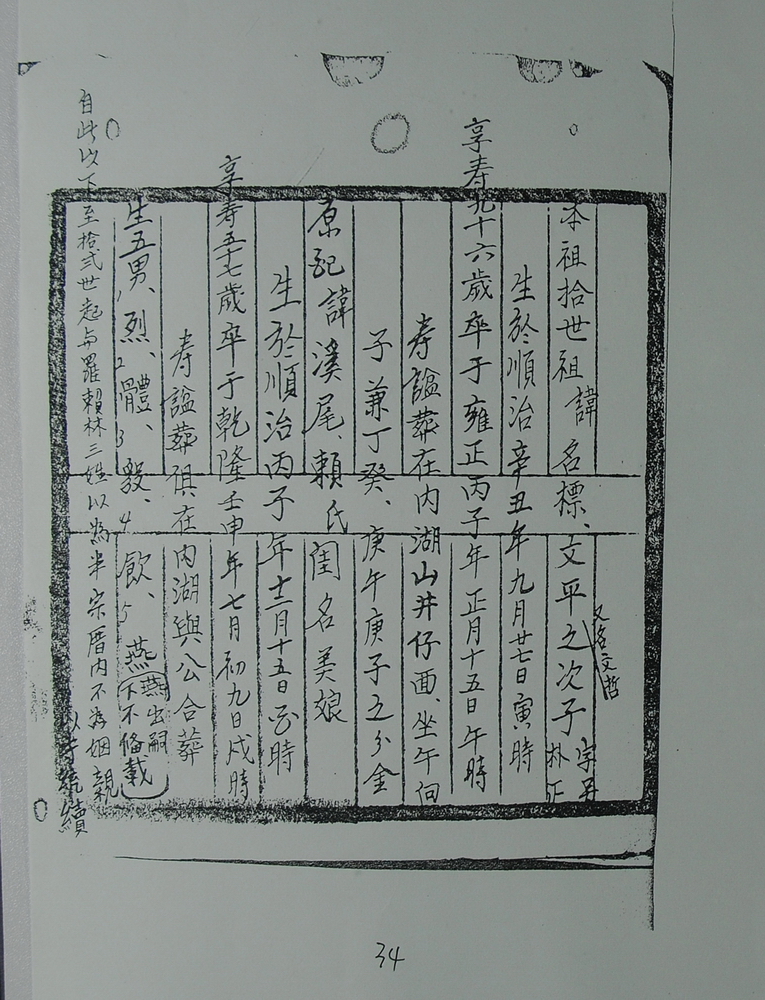 本祖拾世祖諱名標、文平之次子
又名文哲
生於順治辛丑年九月廿七日寅時
享寿九十六歲卒于雍正丙子年正月十五日午時
寿諡葬在内湖山井仔面、坐午向
子兼丁癸、庚午庚子之分金
原配諱溪尾、賴氏閨名美娘
生於順治丙子年十二月十五日酉時
享寿五十七歲卒于乾隆壬申年七月初九日戌時
寿諡葬俱在内湖與公合葬
生五男、1烈、2體、3毅、4飲、5燕
燕出嗣
下不俻載
自此以下至拾弍世起与羅賴林三姓以為半宗厝内不為姻親
34